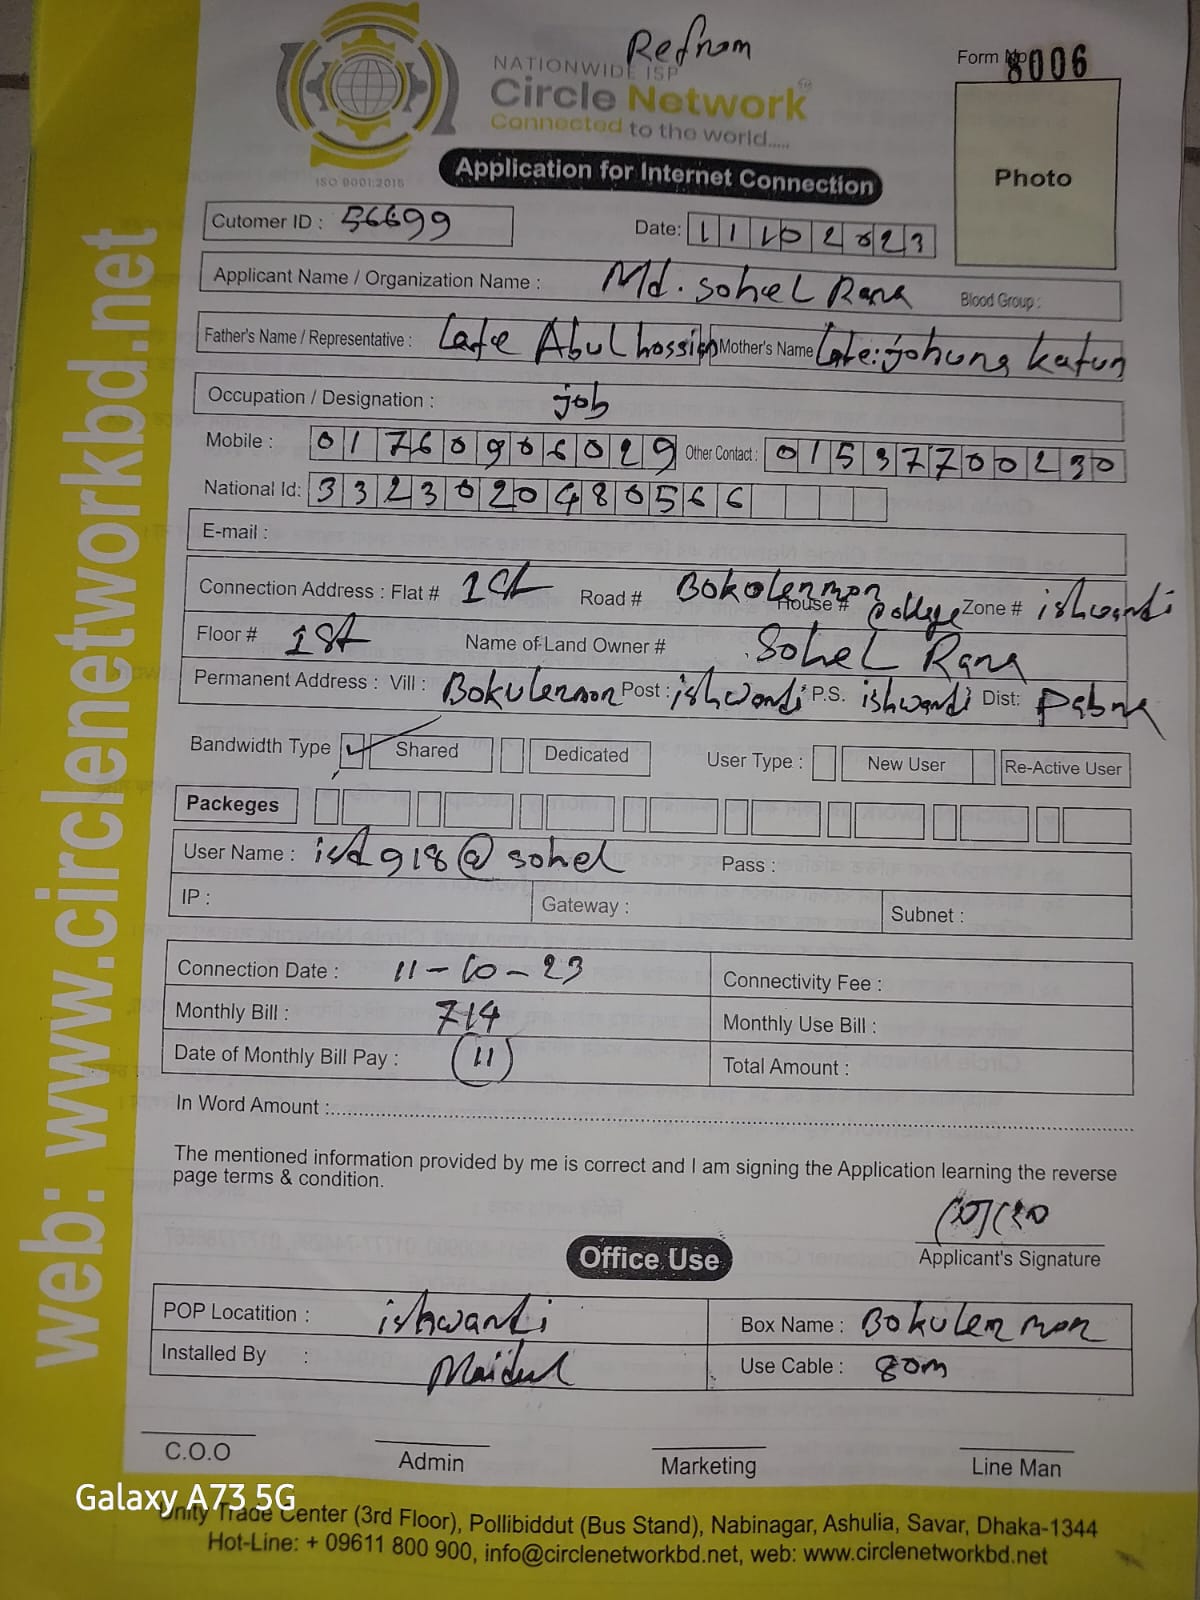 Refrom
NATIONWIDE ISP
Circle Network
Connected to the world.....
ISO 9001:2015
Form No 8006
Photo
Application for Internet Connection
Cutomer ID : 56699
Date: 11102023
Applicant Name / Organization Name : Md. Sohel Rana Blood Group :
Father's Name / Representative : Late Abul hossion Mother's Name Late: johuna katun
Occupation / Designation : job
Mobile : 01760906029 Other Contact : 01537700230
National Id: 3323020480566
E-mail :
Connection Address : Flat # 1st Road # Bokolenmon House # College Zone # ishwardi
Floor # 1st Name of Land Owner # Sohel Rana
Permanent Address : Vill : Bokulenmon Post : ishwardi P.S. ishwardi Dist: Pabna
Bandwidth Type ✓ Shared Dedicated User Type : New User Re-Active User
Packeges
User Name : isd918@sohel Pass :
IP : Gateway : Subnet :
Connection Date : 11-10-23 Connectivity Fee :
Monthly Bill : 714 Monthly Use Bill :
Date of Monthly Bill Pay : (11) Total Amount :
In Word Amount :
The mentioned information provided by me is correct and I am signing the Application learning the reverse
page terms & condition.
Applicant's Signature
Office Use
POP Locatition : ishwardi Box Name : Bokulen mon
Installed By : Maidul Use Cable : 80m
C.O.O Admin Marketing Line Man
Unity Trade Center (3rd Floor), Pollibiddut (Bus Stand), Nabinagar, Ashulia, Savar, Dhaka-1344
Hot-Line: + 09611 800 900, info@circlenetworkbd.net, web: www.circlenetworkbd.net
web: www.circlenetworkbd.net
Galaxy A73 5G